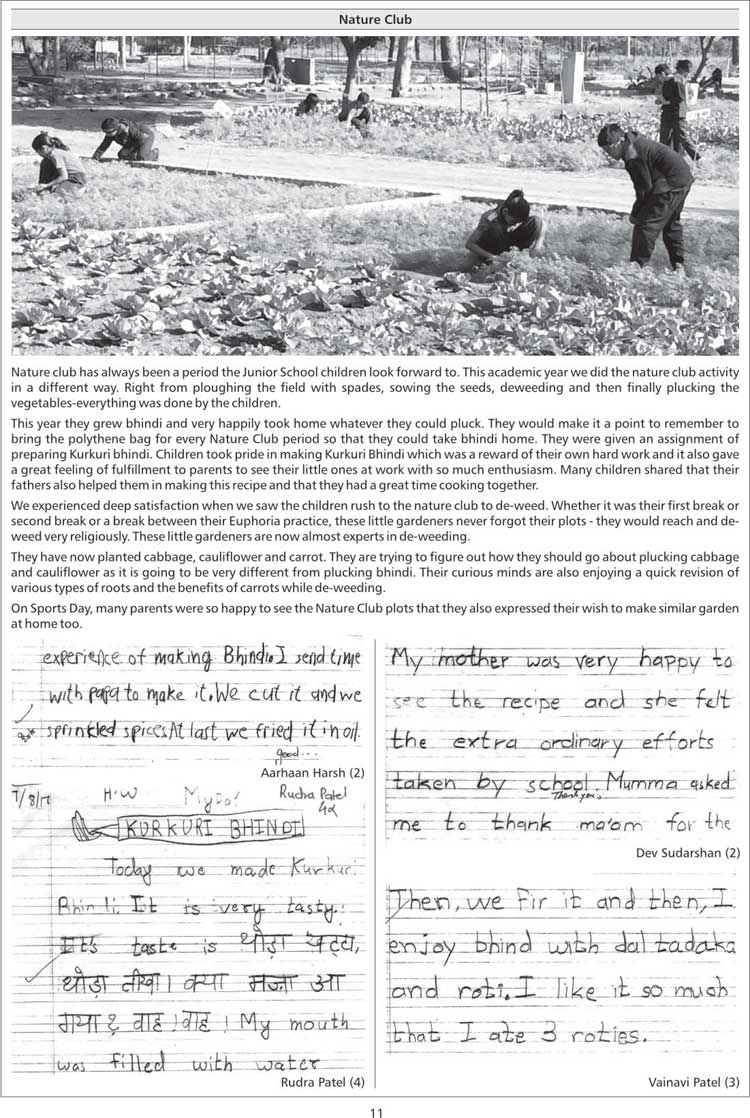 Nature Club
Nature club has always been a period the Junior School children look forward to. This academic year we did the nature club activity
in a different way. Right from ploughing the field with spades, sowing the seeds, deweeding and then finally plucking the
vegetables-everything was done by the children.
This year they grew bhindi and very happily took home whatever they could pluck. They would make it a point to remember to
bring the polythene bag for every Nature Club period so that they could take bhindi home. They were given an assignment of
preparing Kurkuri bhindi. Children took pride in making Kurkuri Bhindi which was a reward of their own hard work and it also gave
a great feeling of fulfillment to parents to see their little ones at work with so much enthusiasm. Many children shared that their
fathers also helped them in making this recipe and that they had a great time cooking together.
We experienced deep satisfaction when we saw the children rush to the nature club to de-weed. Whether it was their first break or
second break or a break between their Euphoria practice, these little gardeners never forgot their plots - they would reach and de-
weed very religiously. These little gardeners are now almost experts in de-weeding.
They have now planted cabbage, cauliflower and carrot. They are trying to figure out how they should go about plucking cabbage
and cauliflower as it is going to be very different from plucking bhindi. Their curious minds are also enjoying a quick revision of
various types of roots and the benefits of carrots while de-weeding.
On Sports Day, many parents were so happy to see the Nature Club plots that they also expressed their wish to make similar garden
at home too.
experience of making Bhindi. I send time
with papa to make it. We cut it and we
sprinkled spices At last we fried it in oil.
good...
Aarhaan Harsh (2)
7/8/17 H.W Rudra Patel
KURKURI BHINDI
Today we made Kurkuri
Bhindi. It is very tasty.
It's taste is थोड़ा खट्टा,
थोड़ा तीखा। क्या मज़ा आ
गया है वाह। वाह! My mouth
was filled with water
Rudra Patel (4)
My mother was very happy to
see the recipe and she felt
the extra ordinary efforts
taken by school. Mumma asked
Thank you
me to thank ma'am for the
Dev Sudarshan (2)
Then, we fir it and then, I
enjoy bhind with dal tadaka
and roti. I like it so much
that I ate 3 roties.
Vainavi Patel (3)
11